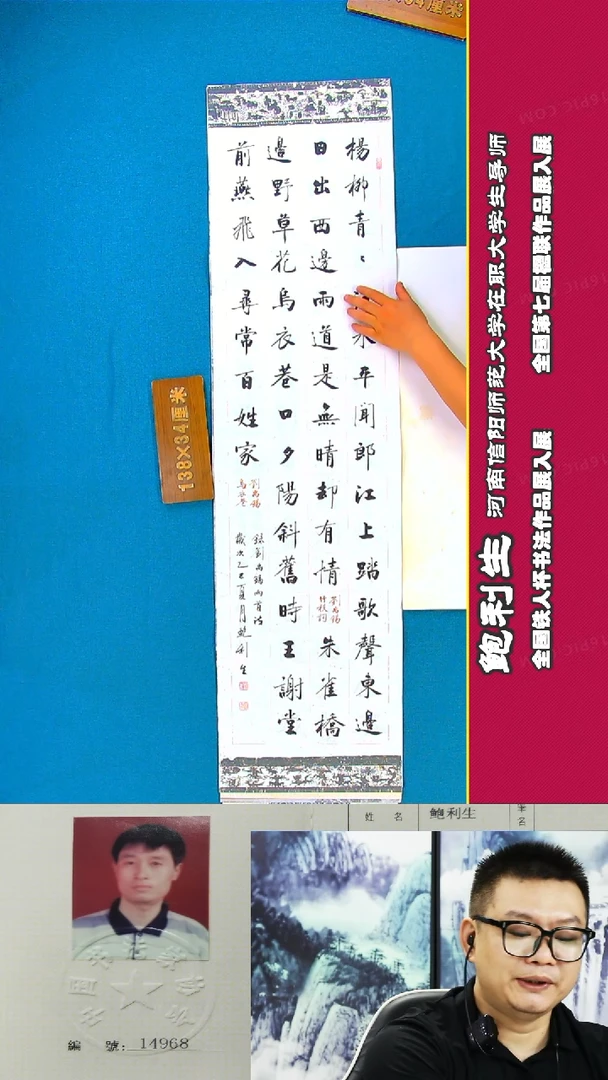 34厘米
楊柳青〻水平聞郎江上踏歌聲東邊
日出西邊雨道是無晴却有情
劉禹錫
竹枝詞
朱雀橋
邊野草花烏衣巷口夕陽斜舊時王謝堂
前燕飛入尋常百姓家
劉禹錫
烏衣巷
錄劉禹錫兩首詩
歲次乙巳夏月鮑利生
138×34厘米
鲍利生 河南信阳师范大学在职大学生导师
全国铁人杯书法作品展入展 全国第七届楹联作品展入展
姓 名 鲍利生
編 號: 14968